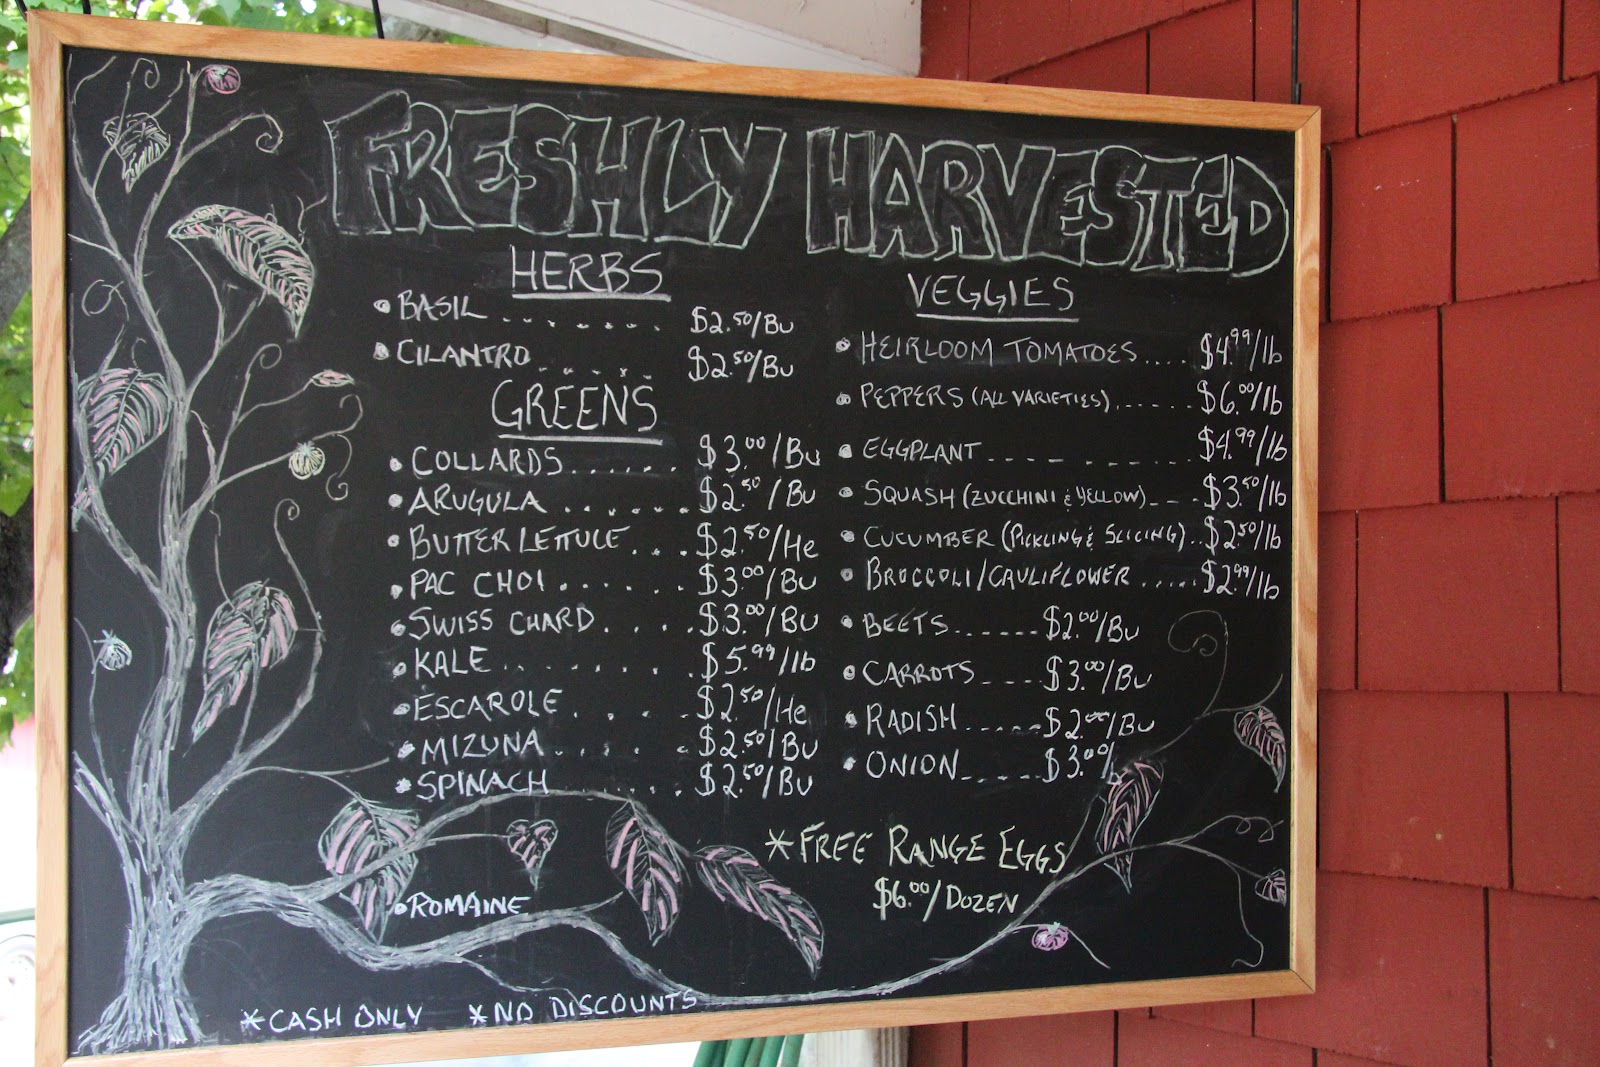 FRESHLY HARVESTED
HERBS
• BASIL ....... $2.50/Bu
• CILANTRO ..... $2.50/Bu
GREENS
• COLLARDS ...... $3.00/Bu
• ARUGULA ...... $2.50/Bu
• BUTTER LETTUCE .... $2.50/He
• PAC CHOI ...... $3.00/Bu
• SWISS CHARD ..... $3.00/Bu
• KALE ....... $5.99/lb
• ESCAROLE .... $2.50/He
• MIZUNA ...... $2.50/Bu
• SPINACH ...... $2.50/Bu
• ROMAINE
VEGGIES
• HEIRLOOM TOMATOES .... $4.99/lb
• PEPPERS (ALL VARIETIES) ..... $6.00/lb
• EGGPLANT --------- $4.99/lb
• SQUASH (ZUCCHINI & YELLOW) ---- $3.50/lb
• CUCUMBER (PICKLING & SLICING) .. $2.50/lb
• BROCCOLI/CAULIFLOWER ..... $2.99/lb
• BEETS ------ $2.00/Bu
• CARROTS ---- $3.00/Bu
• RADISH ------ $2.00/Bu
• ONION ------ $3.00/
* FREE RANGE EGGS
$6.00/DOZEN
* CASH ONLY * NO DISCOUNTS